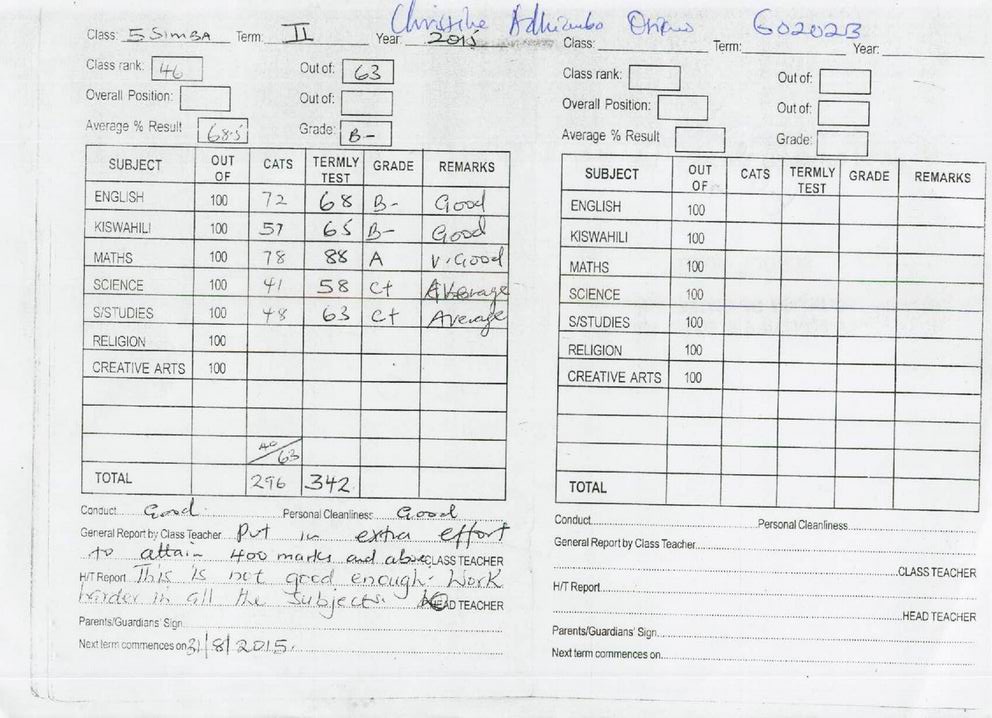 Christine Adhiambo 602023
Class: 5 SIMBA Term: II Year: 2015
Class rank: 46 Out of: 63
Overall Position: Out of:
Average % Result 68.5 Grade: B-
SUBJECT OUT OF CATS TERMLY TEST GRADE REMARKS
ENGLISH 100 72 68 B- Good
KISWAHILI 100 57 65 B- Good
MATHS 100 78 88 A V.Good
SCIENCE 100 41 58 C+ Average
S/STUDIES 100 48 63 C+ Average
RELIGION 100
CREATIVE ARTS 100
40/63
TOTAL 296 342
Conduct Good Personal Cleanliness Good
General Report by Class Teacher Put in extra effort
to attain 400 marks and above CLASS TEACHER
H/T Report This is not good enough. Work
harder in all the subjects. HEAD TEACHER
Parents/Guardians' Sign
Next term commences on 31/8/2015.
Class: Term: Year:
Class rank: Out of:
Overall Position: Out of:
Average % Result Grade:
SUBJECT OUT OF CATS TERMLY TEST GRADE REMARKS
ENGLISH 100
KISWAHILI 100
MATHS 100
SCIENCE 100
S/STUDIES 100
RELIGION 100
CREATIVE ARTS 100
TOTAL
Conduct Personal Cleanliness
General Report by Class Teacher
CLASS TEACHER
H/T Report
HEAD TEACHER
Parents/Guardians' Sign
Next term commences on